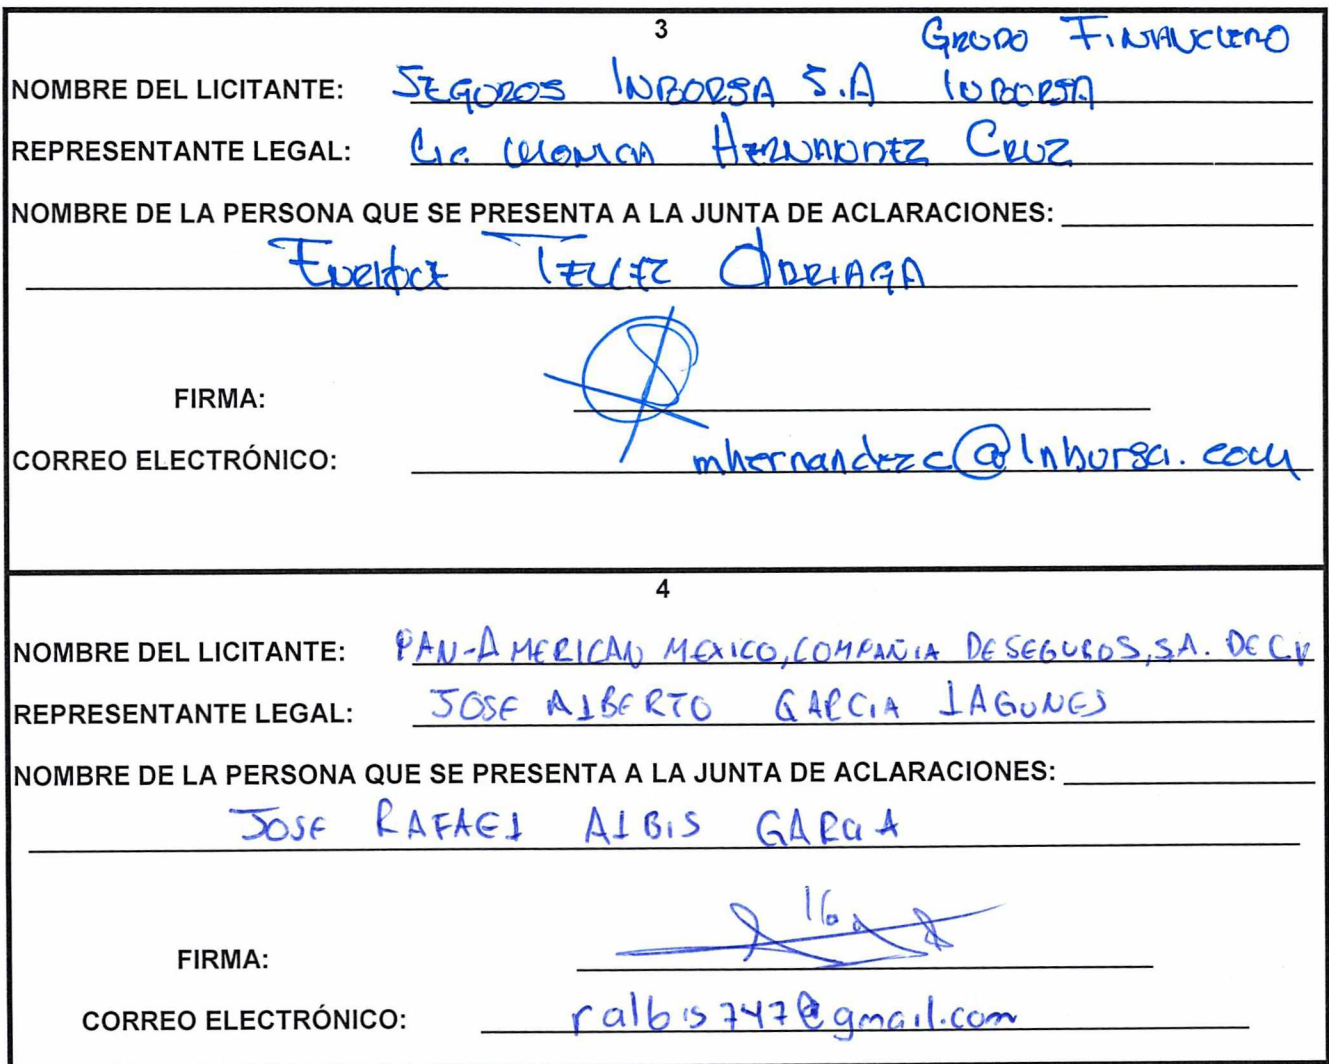 3
GRUPO FINANCIERO
NOMBRE DEL LICITANTE: SEGUROS INBURSA S.A INBURSA
REPRESENTANTE LEGAL: Lic. MONICA HERNANDEZ CRUZ
NOMBRE DE LA PERSONA QUE SE PRESENTA A LA JUNTA DE ACLARACIONES:
ENRIQUE TELLEZ
FIRMA:
CORREO ELECTRÓNICO: mhernandezc@inbursa.com
4
NOMBRE DEL LICITANTE: PAN-AMERICAN MEXICO, COMPAÑIA DE SEGUROS, S.A. DE C.V
REPRESENTANTE LEGAL: JOSE ALBERTO GARCIA LAGUNES
NOMBRE DE LA PERSONA QUE SE PRESENTA A LA JUNTA DE ACLARACIONES:
JOSE RAFAEL ALBIS GARCIA
FIRMA:
CORREO ELECTRÓNICO: ralbis747@gmail.com